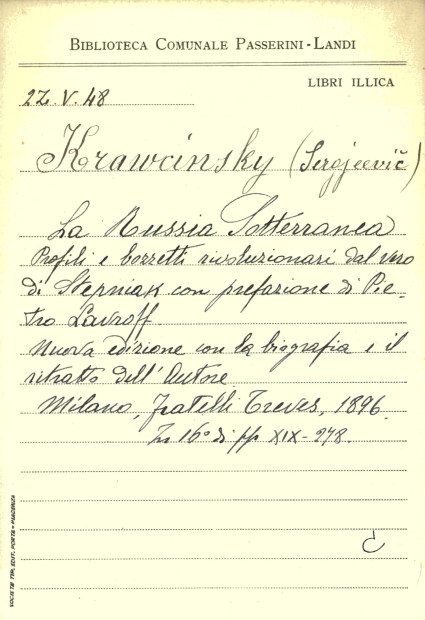 BIBLIOTECA COMUNALE PASSERINI-LANDI
LIBRI ILLICA
2Z.V.48
Krawcinsky (Sergjeevič)
La Russia Sotterranea
Profili e bozzetti rivoluzionari dal vero
di Stepniak con prefazione di Pie-
tro Lavroff.
Nuova edizione con la biografia e il
ritratto dell'Autore.
Milano, Fratelli Treves, 1896.
In 16° di pp XIX-278.
C
SOCIETÀ TIP. EDIT. PORTA - PIACENZA